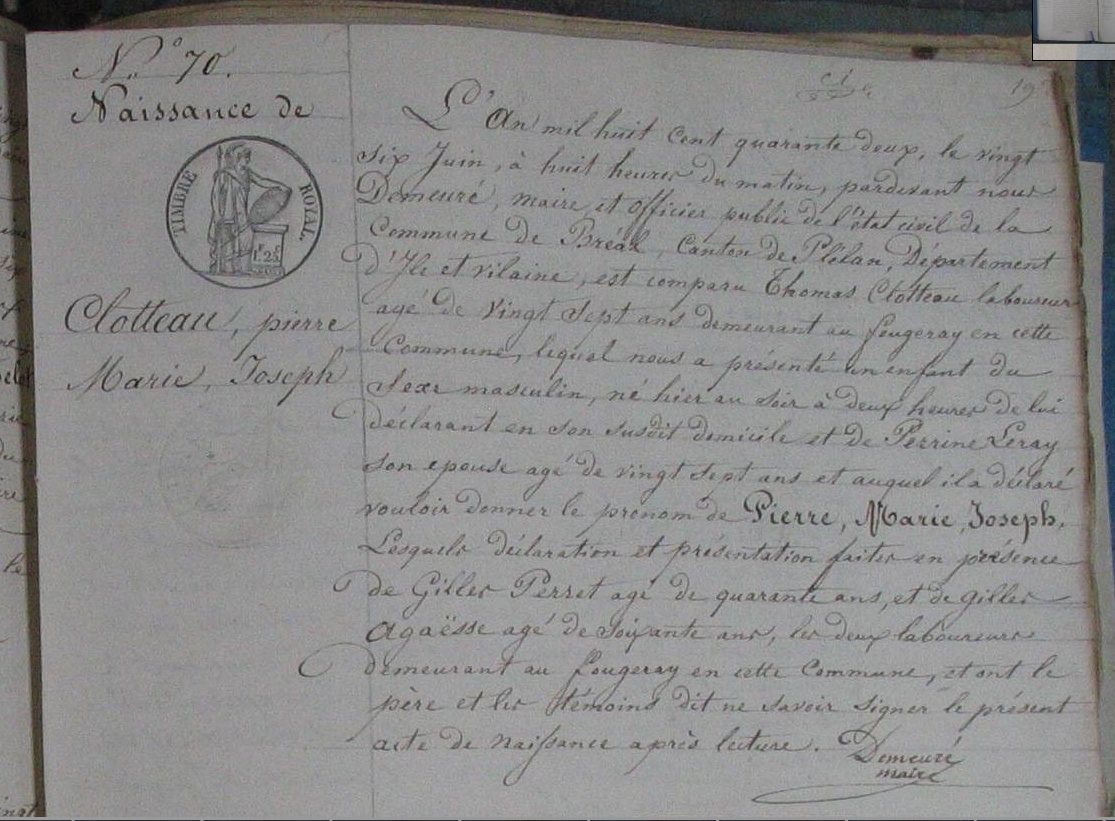 N.° 70.
Naissance de
TIMBRE ROYAL
1F 25
Clotteau, pierre
Marie, Joseph
19
L'An mil huit cent quarante deux, le vingt
six Juin, à huit heures du matin, pardevant nous
Demeuré, maire, et officier public de l'état civil de la
Commune de Bréal, Canton de Plélan, Département
d'Ile et vilaine, est comparu Thomas Clotteau laboureur
agé de vingt sept ans demeurant au fougeray en cette
Commune, lequel nous a présenté un enfant du
Sexe masculin, né hier au soir à deux heures de lui
déclarant en son susdit domicile et de Perrine Leray
son epouse agé de vingt sept ans et auquel il a déclaré
vouloir donner le prenom de Pierre, Marie, Joseph.
Lesquels déclaration et présentation faites en présence
de Gilles Perret agé de quarante ans, et de gilles
Agaësse agé de soixante ans, les deux laboureurs
demeurant au fougeray en cette Commune, et ont le
père et les témoins dit ne savoir signer le présent
acte de naissance après lecture. Demeuré
maire